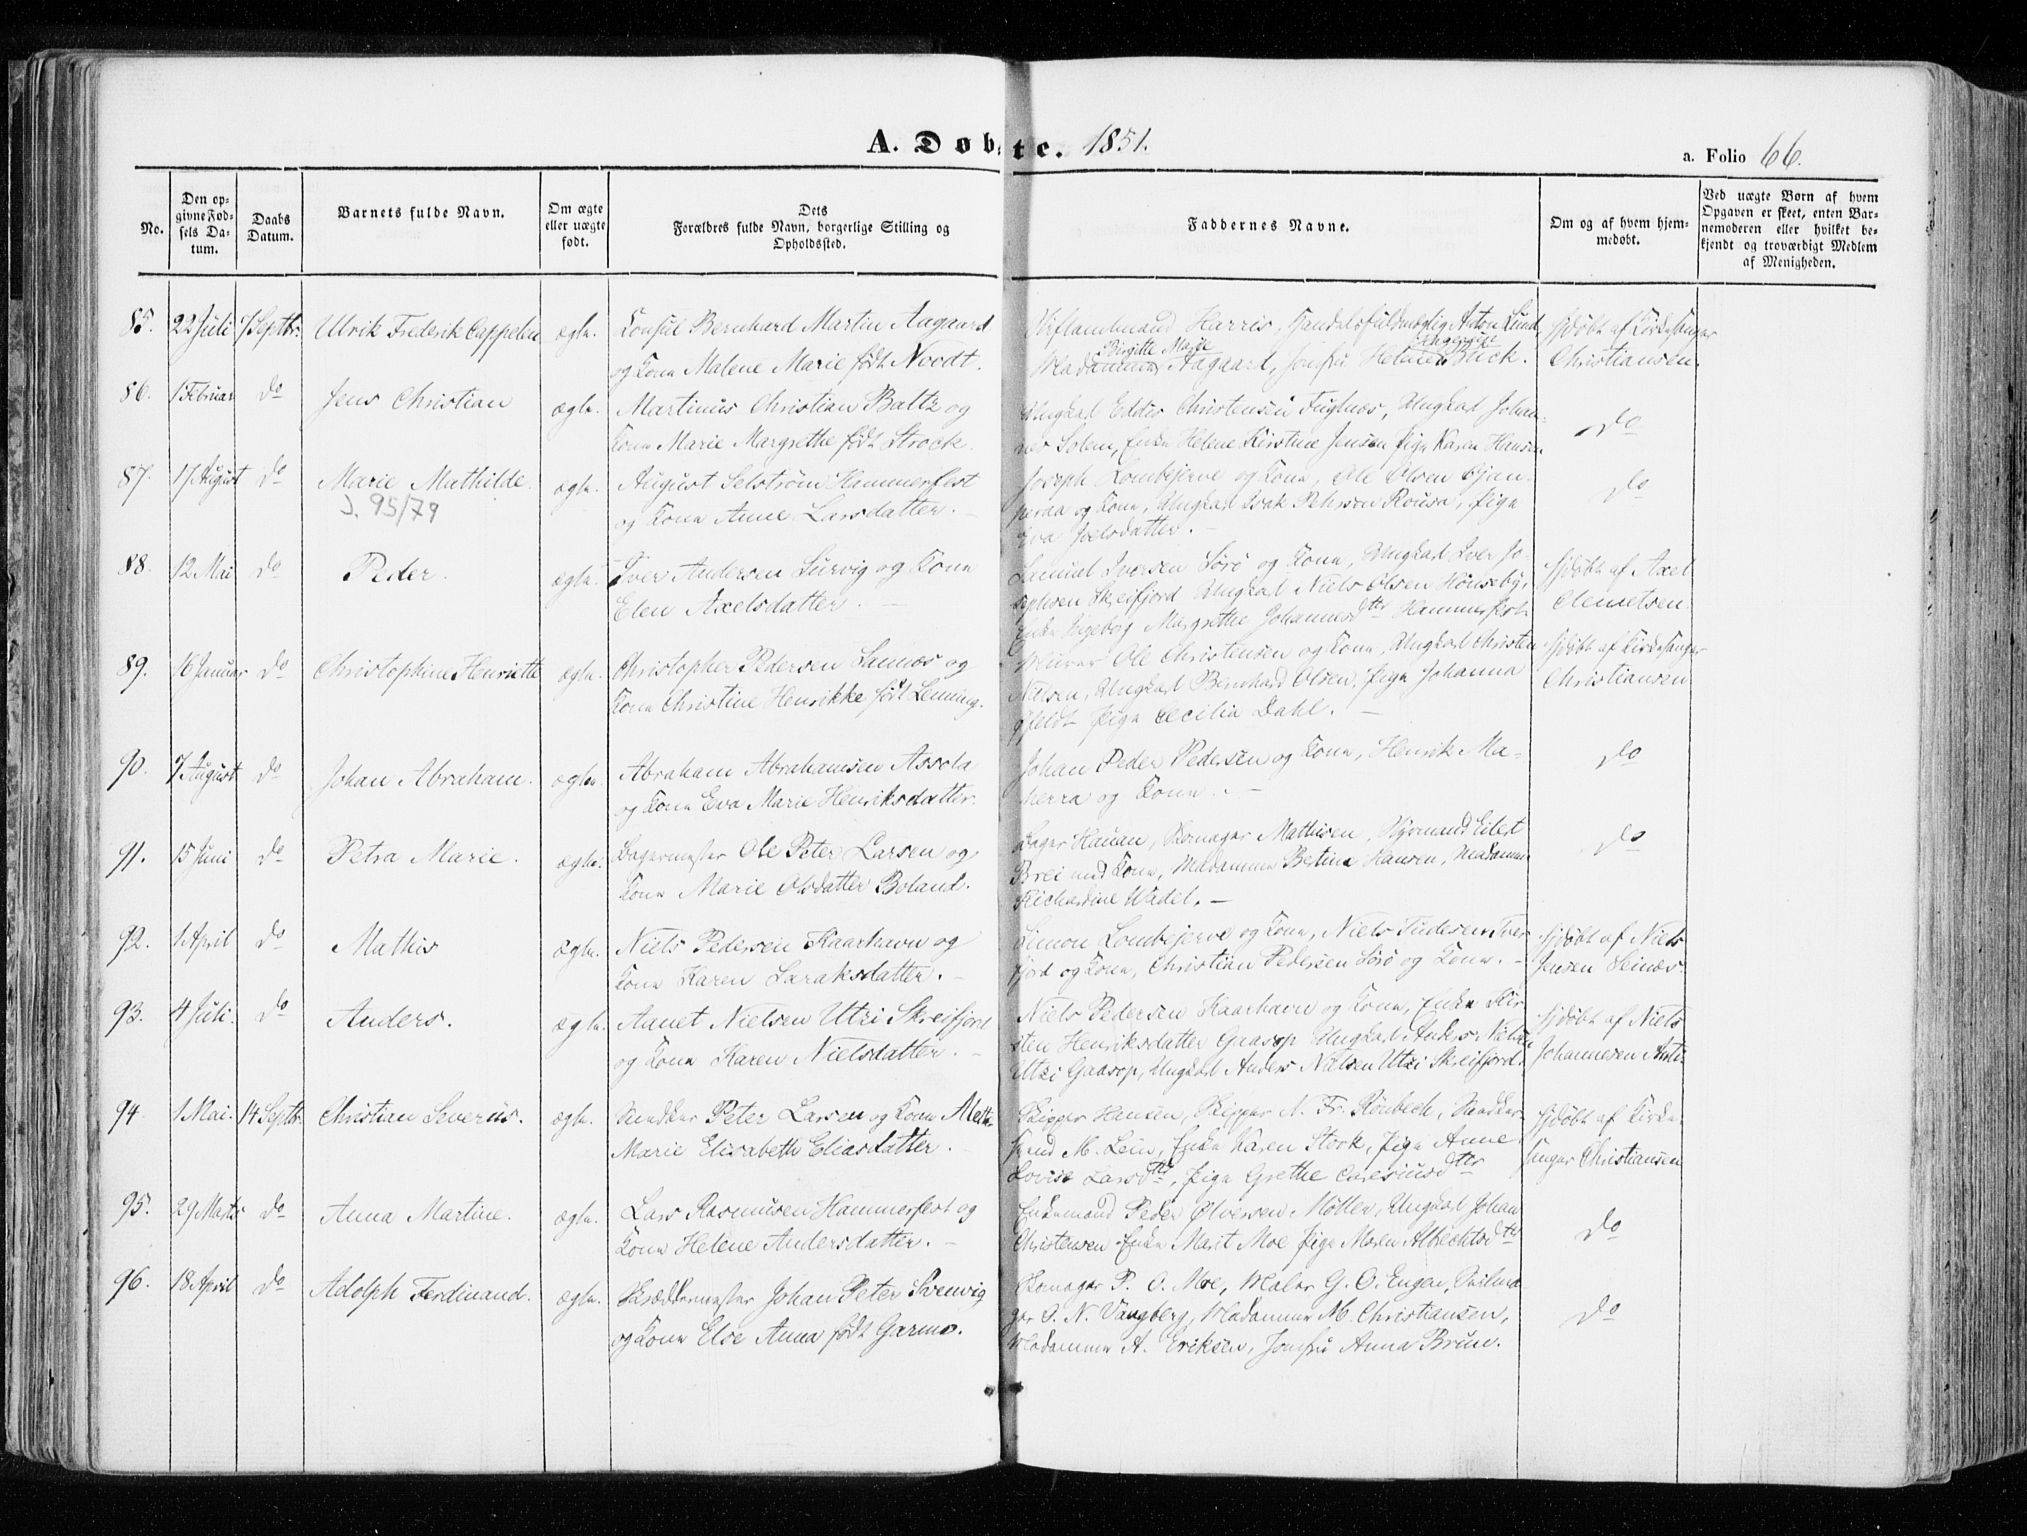 A. Døbte. 1851.
a. Folio 66.
No.
Den op-
givne Fød-
sels Da-
tum.
Daabs
Datum.
Barnets fulde Navn.
Om ægte
eller uægte
født.
Dets
Forældres fulde Navn, borgerlige Stilling og
Opholdssted.
Faddernes Navne.
Om og af hvem hjem-
medøbt.
Ved uægte Børn af hvem
Opgaven er skeet, enten Bar-
nemoderen eller hvilket be-
kjendt og troværdigt Medlem
af Menigheden.
85. 22 Juli 7 Septbr. Ulrik Frederik Cappelen ægte. Consul Bernhard Martin Aagaard
og Kone Malene Marie født Nordt.
Harris, Handelsfuldmægtig Anton Lund
Birgitte Marie
Madammen Aagaard, Jomfru Helene Buck.
hjdøbt af Kirkesanger
Christiansen.
86. 1 Februar do Jens Christian ægte. Martinus Christian Baltz og
Kone Marie Margrethe født Strock.
Ungkal Christensen Fuglnæs, Ungkal Johan-
nes Solem, Enke Helene Kirstine Jensen Pige Karen Hansen
do
87. 17 August do Marie Mathilde. ægte. August Selstrøm Hammerfest
og Kone Anne Larsdatter.
J. 95/79
Joseph Lombejerve og Kone, Ole Olsen
og Kone, Ungkal Isak Petersen Rousa, Pige
Eva Joelsdatter.
do
88. 12 Mai do Peder. ægte. Iver Andersen Survig og Kone
Elen Axelsdatter.
Samuel Iversen Sørø og Kone, Ungkal Iver Jo-
sephsen Skreifjord Ungkal Niels Olsen Hønseby,
Enke Ingeborg Margrethe Johannesdtter Hammerfest
hjdøbt af Axel
Clemetsen.
89. 16 Januar do Christophine Henriette ægte. Christopher Pedersen Sannæs og
Kone Christine Henrikke født Lenning.
Ole Christensen og Kone, Ungkal Christen
Nielsen, Ungkal Bernhard Olsen, Pige Johanna
Pige Cecilia Dahl.
hjdøbt af Kirkesanger
Christiansen
90. 7 August do Johan Abraham. ægte. Abraham Abrahamsen Assola
og Kone Eva Marie Henriksdatter.
Johan Peder Pedersen og Kone, Henrik Ma-
herra og Kone.
do
91. 15 Juni do Petra Marie. ægte. Bagermester Ole Peter Larsen og
Kone Marie Olsdatter Boland.
Bager Hauan, Mathisen, Eilert
Brei med Kone, Madamme Betina Hansen, Madamme
Richardine Wadel.
do
92. 1 April do Mathis ægte. Niels Pedersen Kaarhavn og
Kone Karen Saraksdatter.
Simon Lombejerve og Kone, Niels Tudesen Tver-
fjord og Kone, Christian Pedersen Sørø og Kone.
hjdøbt af Niels
Jensen Seinæs.
93. 4 Juli. do Anders. ægte. Aanet Nielsen Utzi Skreifjord
og Kone Karen Nielsdatter.
Niels Pedersen Kaarhavn og Kone, Enke Kir-
sten Henriksdatter Gaasop Ungkal Anders Nielsen
Utzi Gaasop, Ungkal Anders Nielsen Utzi Skreifjord.
hjdøbt af Niels
Johannesen Anti
94. 1 Mai. 14 Septbr. Christian Severin. ægte. Snedker Peter Larsen og Kone Alette
Marie Elisabeth Eliasdatter.
Skipper Hansen, Skipper N. Fr. Rønbech, Snedker-
svend M. Lein, Enke Karen Stork, Pige Anne
Lovise Larsdtr, Pige Grethe Caresiusdtter
hjdøbt af Kirke-
sanger Christiansen
95. 29 Marts do Anna Martine. ægte. Lars Rasmusen Hammerfest og
Kone Helene Andersdatter.
Enkemand Peder Olversen Møller, Ungkal Johan
Christensen Enke Marit Moe Pige Maren Albrechtsdtter
do
96. 18 April do Adolph Ferdinand. ægte. Skræddermester Johan Peter Svenvig
og Kone Else Anna født Garmo.
P. O. Moe, Maler G. O. Engen,
O. N. Vangberg, Madamme M. Christiansen,
Madamme A. Eriksen, Jomfru Anna Brun.
do